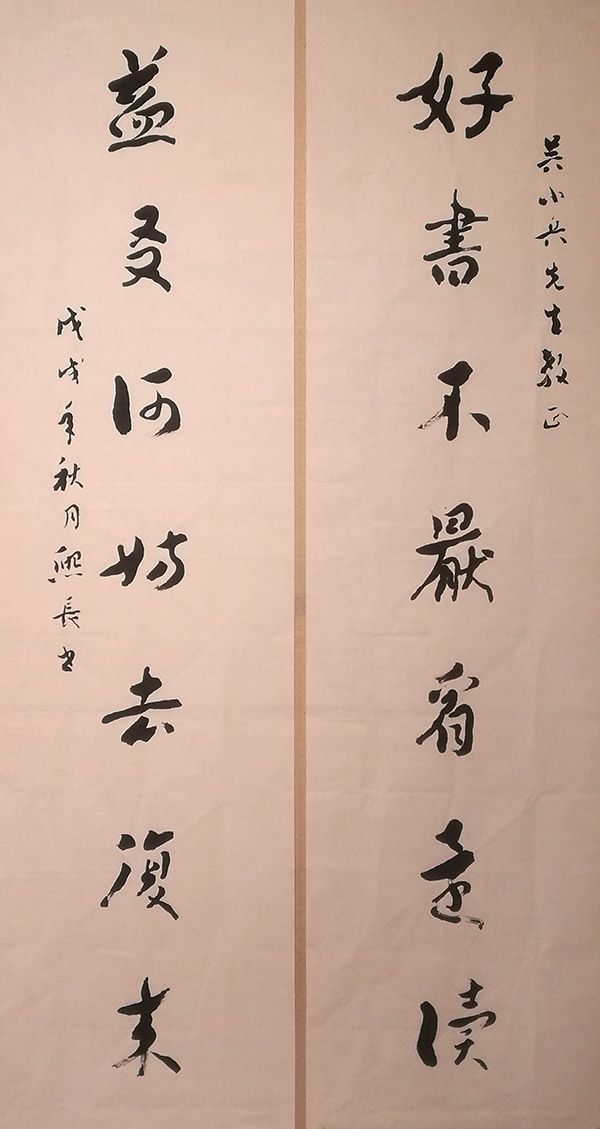 吴小兵先生教正
好書不厭看還读
益友何妨去復来
戊戌年秋月熙長书